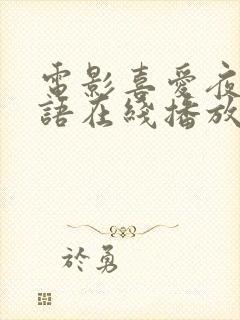 電影喜愛夜
語在綫播放
於勇